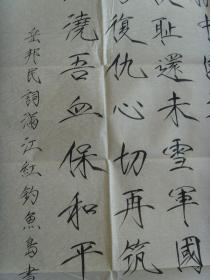 恥還未雪軍國
復仇心切再筑
澆吾血保和平
岳邦民詞滿江紅釣魚島書